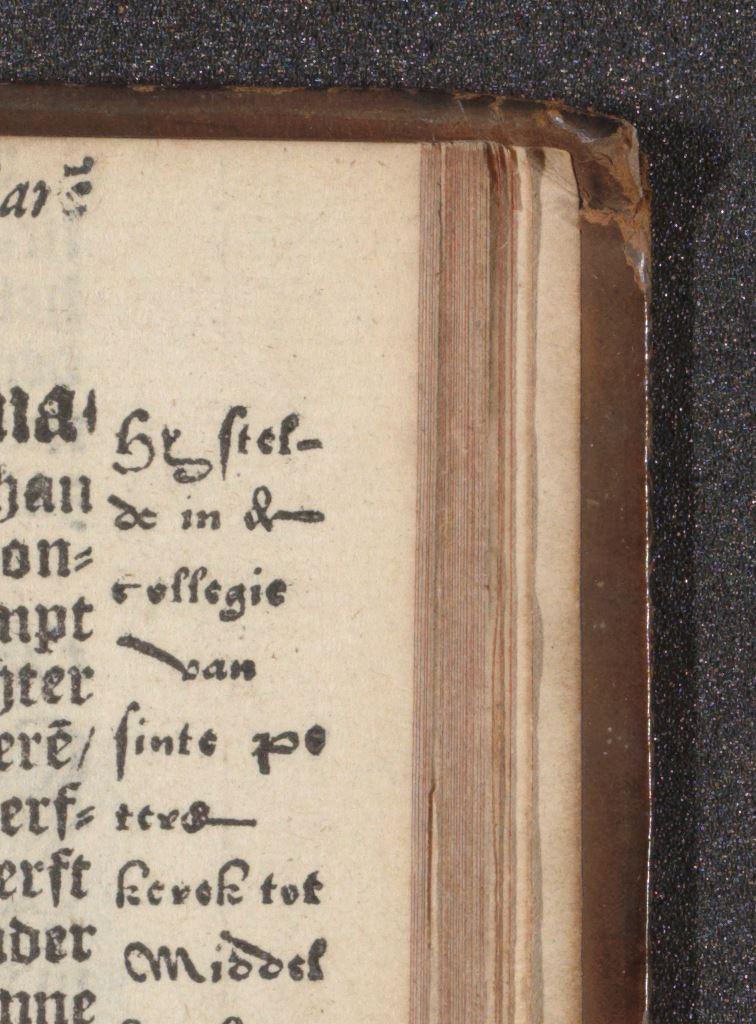 ar
na
han
on⸗
mpt
hter
erẽ/
erf⸗
erft
nder
nne
Hy stel-
de in &
collegie
van
sinte pe
ters
kerck tot
Middel